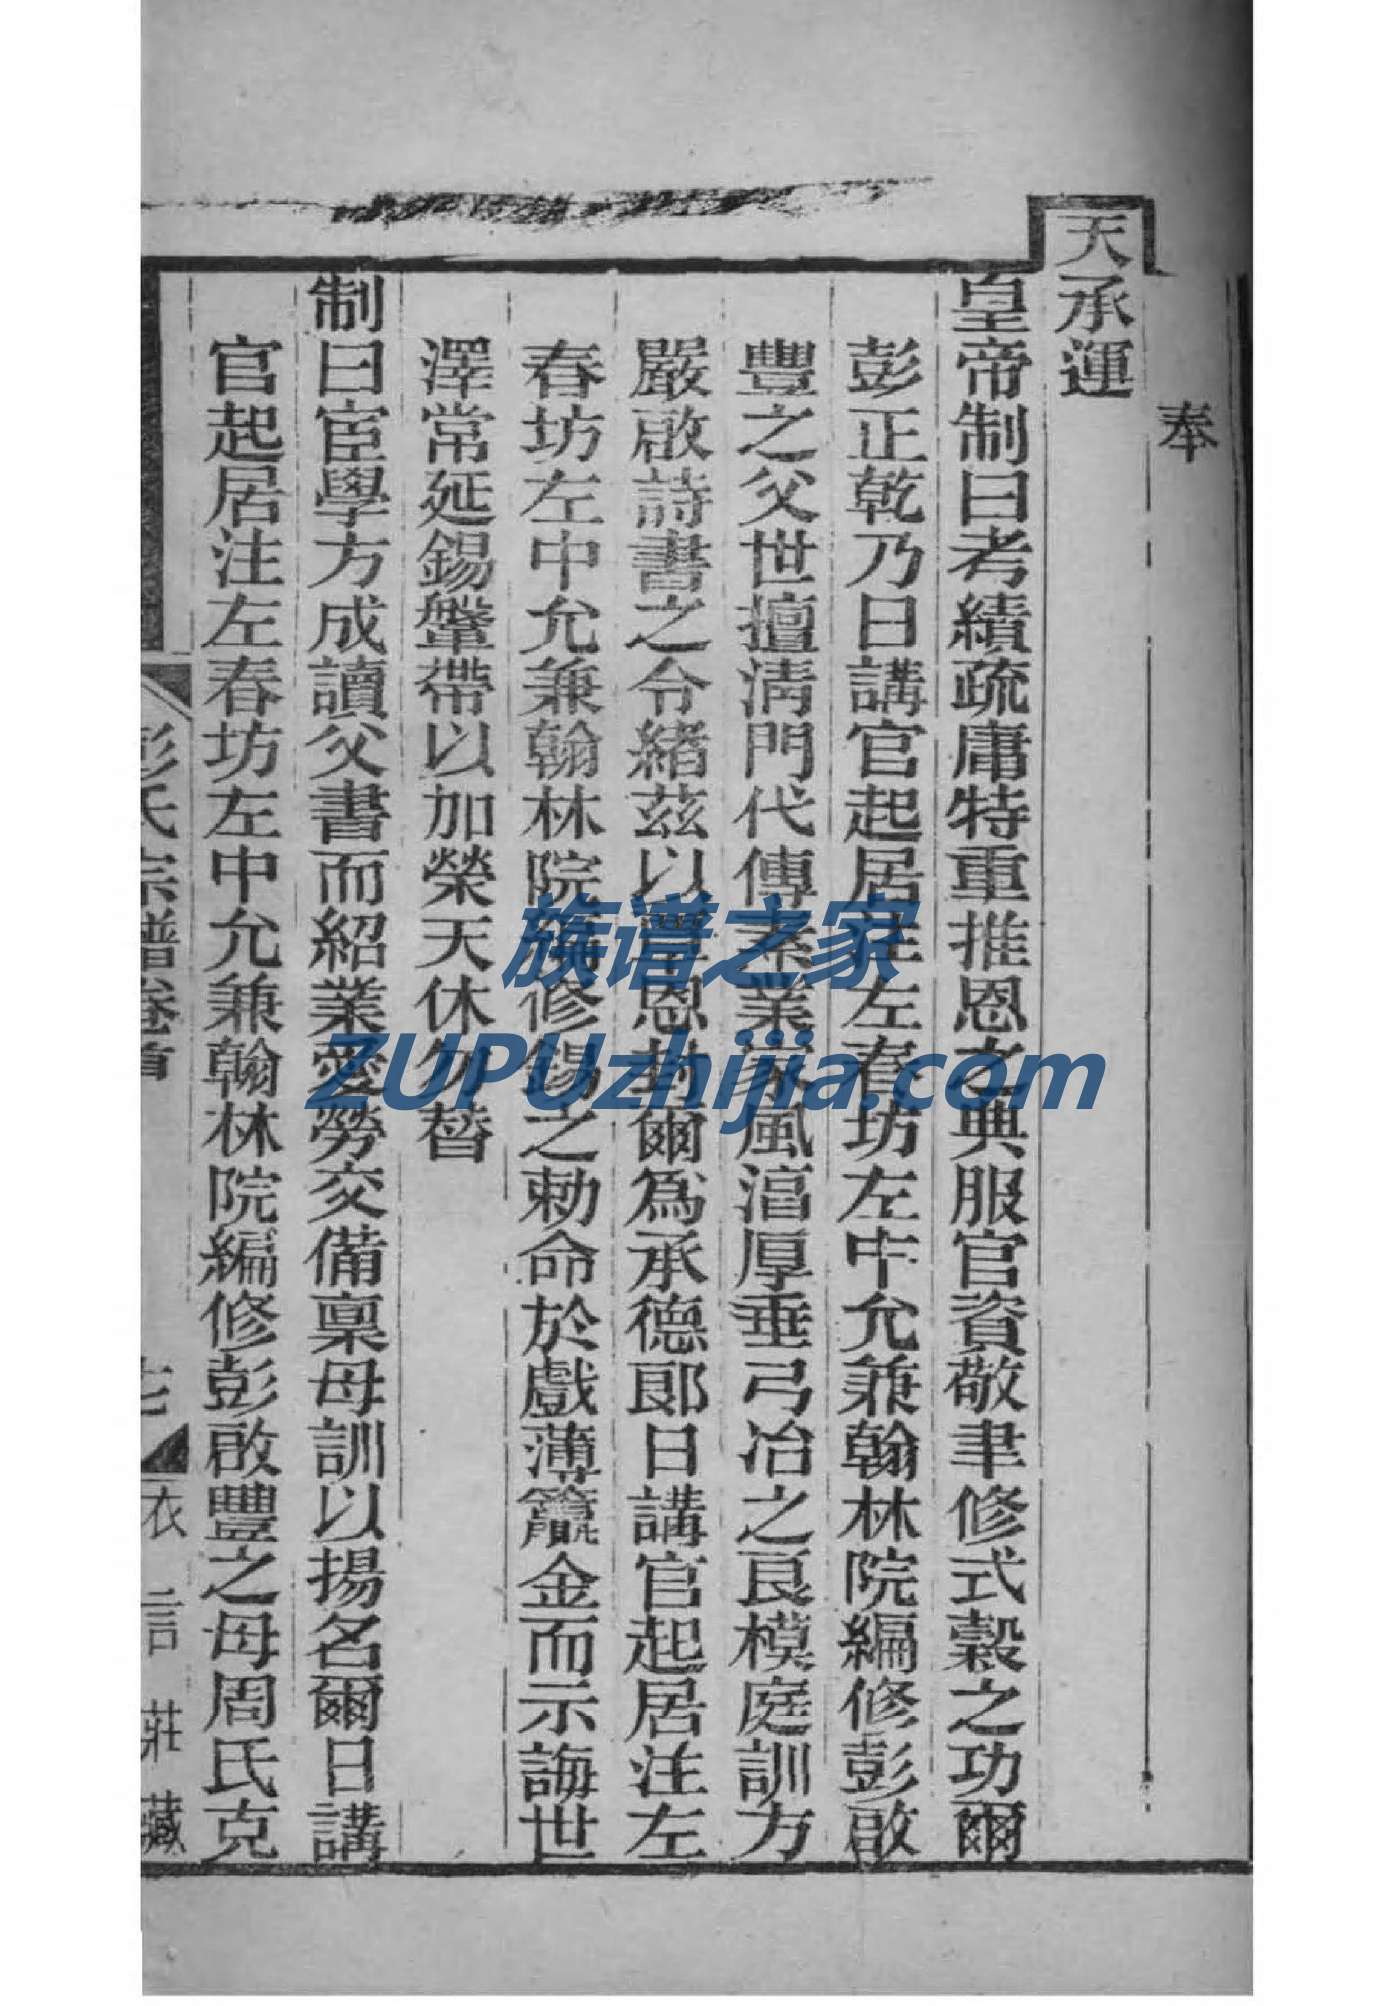 奉
天承運
皇帝制曰考績疏庸特重推恩之典服官資敬聿修式穀之功爾
彭正乾乃日講官起居注左春坊左中允兼翰林院編修彭啟
豐之父世擅淸門代傳素業家風湻厚垂弓冶之良模庭訓方
嚴啟詩書之令緒茲以覃恩封爾爲承德郞日講官起居注左
春坊左中允兼翰林院編修錫之勅命於戲薄籯金而示誨世
澤常延錫鞶帶以加榮天休勿替
制曰宦學方成讀父書而紹業愛勞交備稟母訓以揚名爾日講
官起居注左春坊左中允兼翰林院編修彭啟豐之母周氏克
彭氏宗譜卷首
衣言莊藏
族谱之家
ZUPUzhijia.com